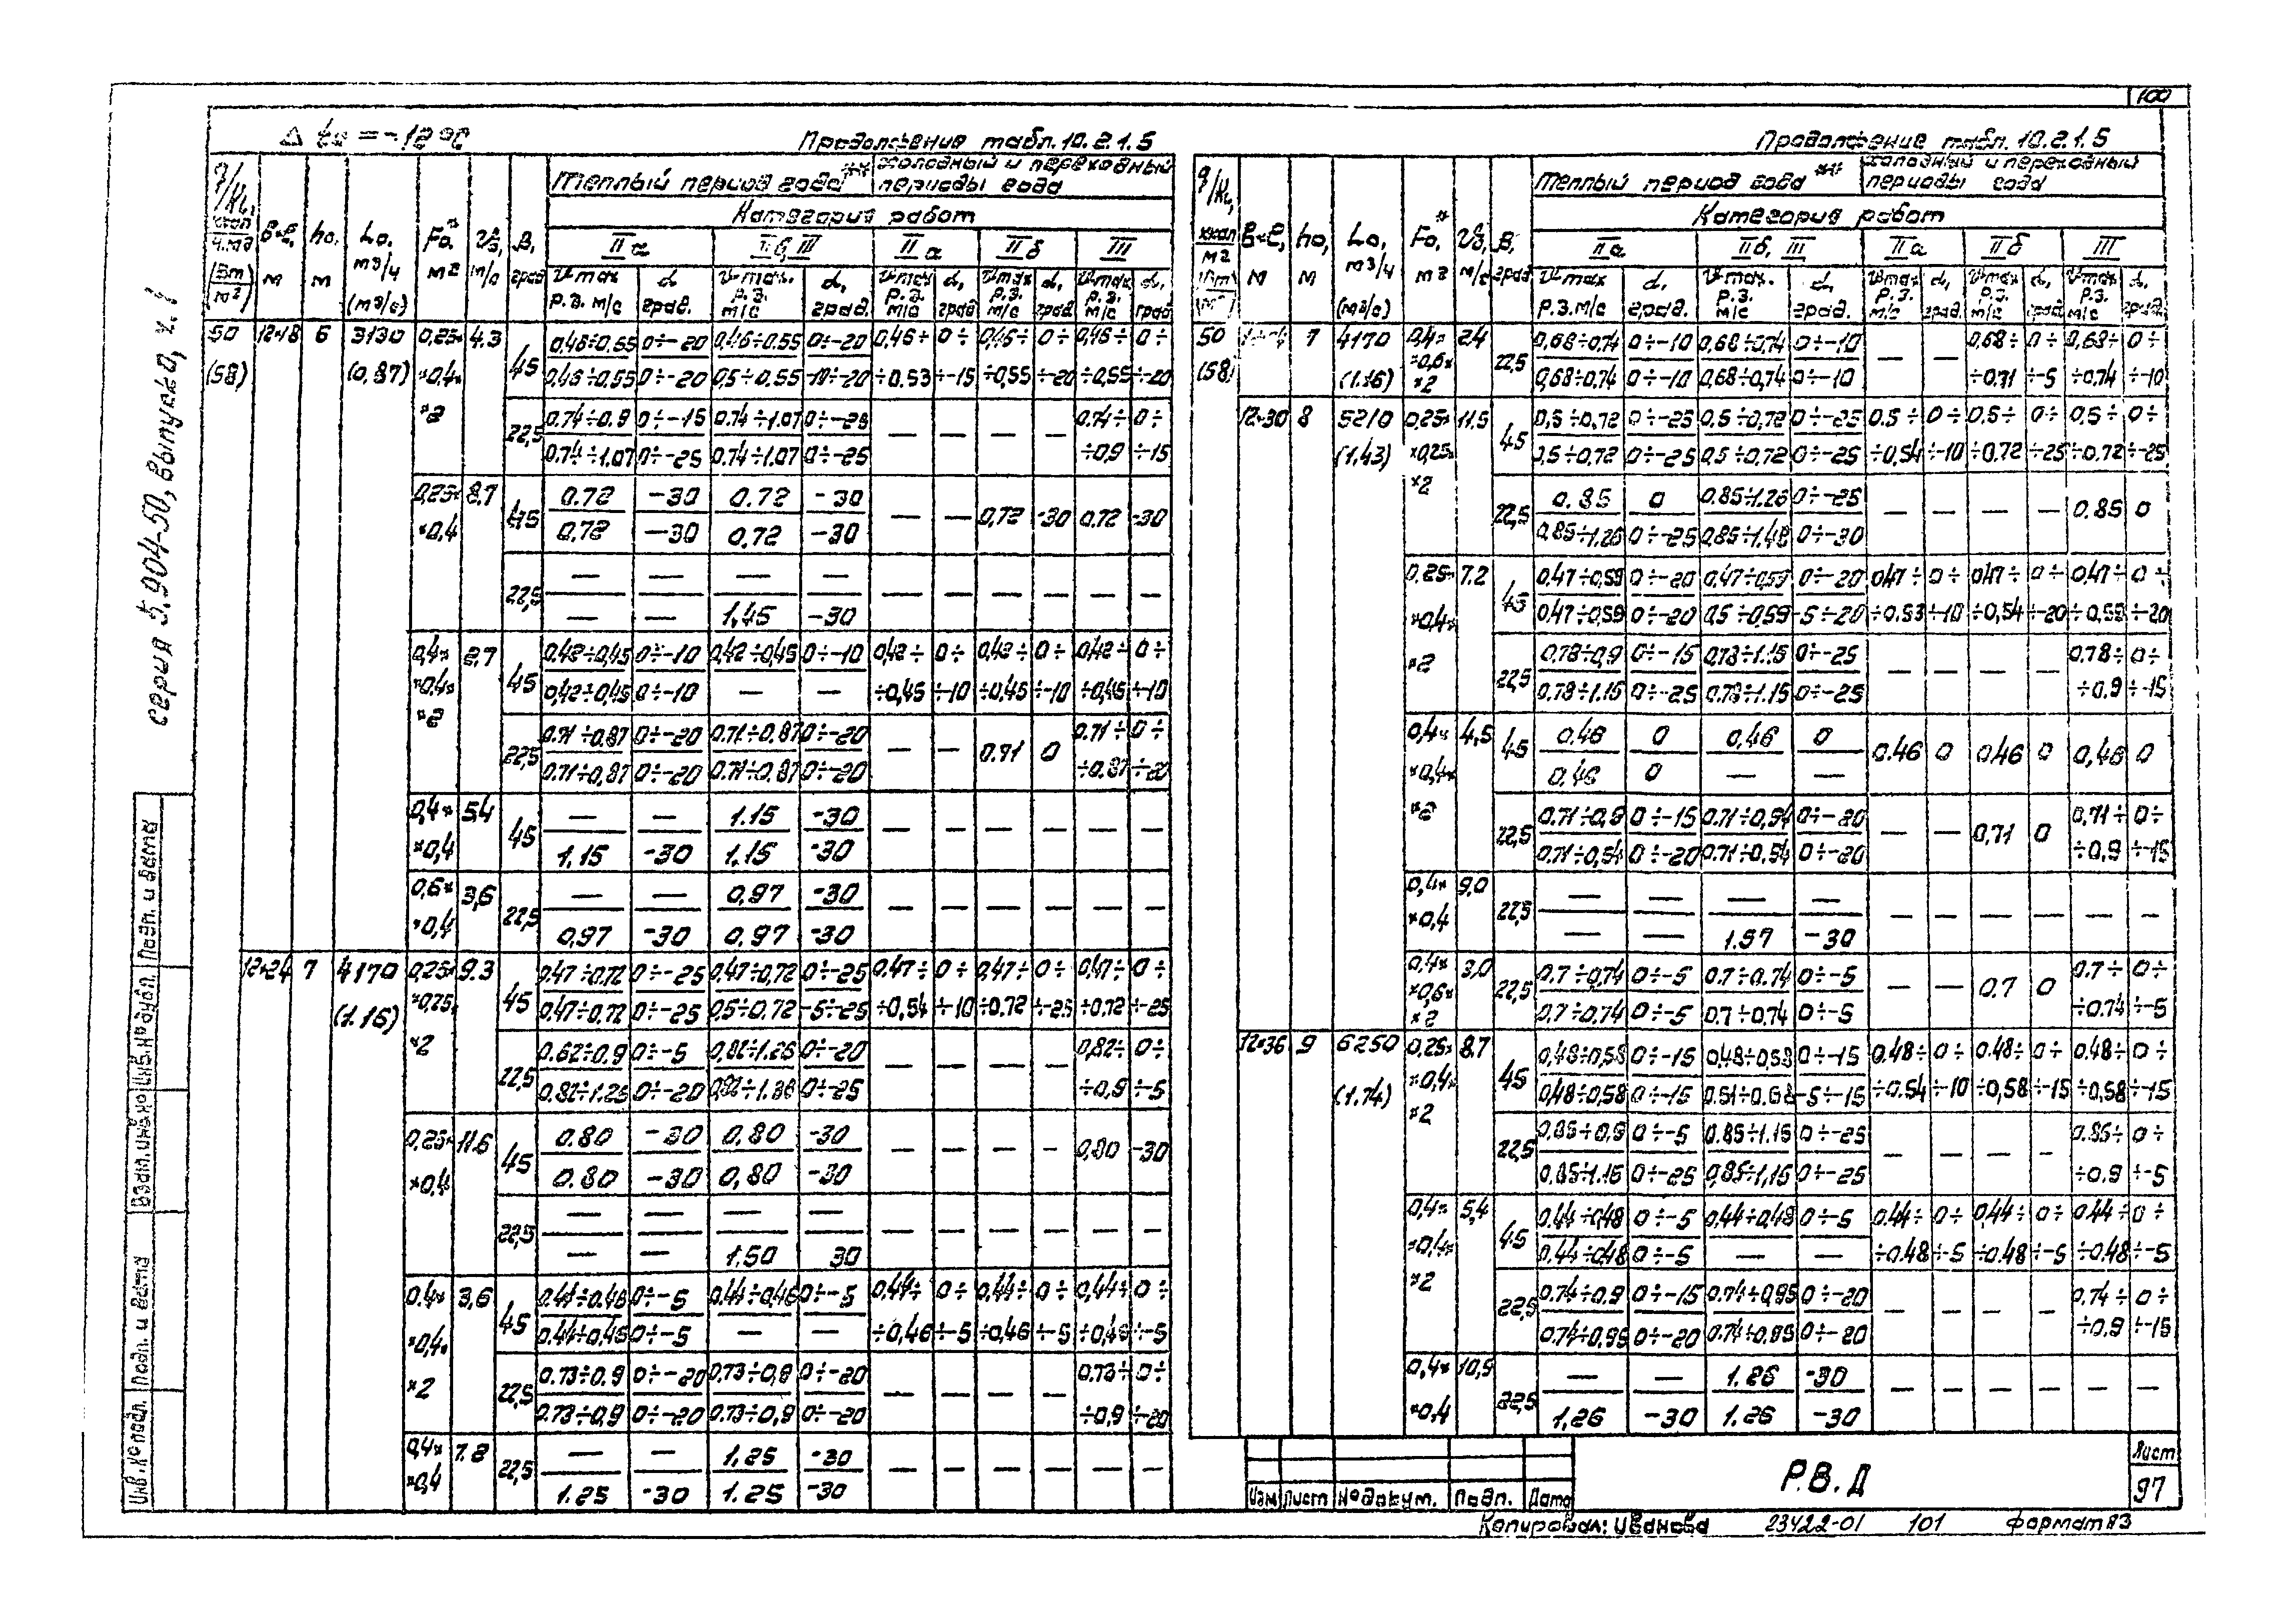 100
Δ to = -12 °C
Продолжение табл. 10.2.1.5
q/KL, ккал/ч.м2 (Вт/м2) | в×ℓ, м | ho, м | Lo, м3/ч (м3/с) | Fo*, м2 | Vо, м/с | β, град | Теплый период года ** | холодный и переходный периоды года
Категория работ
IIа | IIб, III | IIа | IIб | III
Vmax р.з. м/с | α, град. | Vmax. р.з. м/с | α, град. | Vmax р.з. м/с | α, град | Vmax р.з. м/с | α, град | Vmax р.з. м/с | α, град
50 (58) | 12×18 | 6 | 3130 (0,87) | 0,25× ×0,4× ×2 | 4.3 | 45 | 0,46÷0,55 0÷-20 0,46÷0.55 0÷-20 | 0,46÷ 0÷ 0,46÷ 0÷ 0,46÷ 0÷
0,46÷0,55 0÷-20 0,5÷0.55 -10÷-20 ÷0.53 ÷-15 ÷0,55 ÷-20 ÷0,55 ÷-20
22,5 | 0.74÷0.9 0÷-15 0.74÷1.07 0÷-25 — — — — 0.74÷ 0÷
0.74÷1.07 0÷-25 0.74÷1.07 0÷-25 ÷0,9 ÷-15
0,25× ×0,4 | 8.7 | 45 | 0.72 -30 0.72 -30 — — 0,72 -30 0.72 -30
0.72 -30 0.72 -30
22,5 | — — — — — — — — — —
— — 1,45 -30
0,4× ×0,4× ×2 | 2.7 | 45 | 0.42÷0,45 0÷-10 0,42÷0,45 0÷-10 0,42÷ 0÷ 0,42÷ 0÷ 0,42÷ 0÷
0,42÷0,45 0÷-10 — — ÷0,45 ÷-10 ÷0,45 ÷-10 ÷0,45 ÷-10
22,5 | 0.71÷0.87 0÷-20 0.71÷0,87 0÷-20 — — 0.71 0 0.71÷ 0÷
0.71÷0,87 0÷-20 0.71÷0,87 0÷-20 ÷0.87 ÷-20
0,4× ×0,4 | 5,4 | 45 | — — 1.15 -30 — — — — — —
1.15 -30 1,15 -30
0,6× ×0,4 | 3,6 | 22,5 | — — 0,97 -30 — — — — — —
0,97 -30 0.97 -30
12×24 | 7 | 4170 (1.16) | 0,25× ×0,25× ×2 | 9.3 | 45 | 0,47÷0.72 0÷-25 0,47÷0,72 0÷-25 0,47÷ 0÷ 0,47÷ 0÷ 0,47÷ 0÷
0,47÷0.72 0÷-25 0,5÷0.72 -5÷-25 ÷0,54 ÷-10 ÷0.72 ÷-25 ÷0.72 ÷-25
22,5 | 0.82÷0.9 0÷-5 0,82÷1.25 0÷-20 — — — — 0,82÷ 0÷
0.82÷1.25 0÷-20 0,82÷1.36 0÷-25 ÷0,9 ÷-5
0,25× ×0,4 | 11.6 | 45 | 0.80 -30 0,80 -30 — — — — 0,80 -30
0.80 -30 0,80 -30
22,5 | — — — — — — — — — —
— — 1,50 30
0.4× ×0,4× ×2 | 3,6 | 45 | 0.44÷0.46 0÷-5 0.44÷0,46 0÷-5 0,44÷ 0÷ 0,44÷ 0÷ 0,44÷ 0÷
0.44÷0,46 0÷-5 — — ÷0,46 ÷-5 ÷0,46 ÷-5 ÷0,46 ÷-5
22,5 | 0.73÷0.9 0÷-20 0,73÷0,9 0÷-20 — — — — 0.73÷ 0÷
0.73÷0,9 0÷-20 0.73÷0,9 0÷-20 ÷0,9 ÷-20
0,4× ×0,4 | 7.2 | 22,5 | — — 1,25 -30 — — — — — —
1.25 -30 1.25 -30
Продолжение табл. 10.2.1.5
q/KL, ккал/м2 (Вт/м2) | в×ℓ, м | ho, м | Lo, м3/ч (м3/с) | Fo*, м2 | Vо, м/с | β, град | Теплый период года ** | холодный и переходный периоды года
Категория работ
IIа | IIб, III | IIа | IIб | III
Vmax р.з. м/с | α, град. | Vmax. р.з. м/с | α, град. | Vmax р.з. м/с | α, град. | Vmax р.з. м/с | α, град | Vmax р.з. м/с | α, град.
50 (58) | 7 | 4170 (1.16) | 0,4× ×0,6× ×2 | 2.4 | 22,5 | 0,68÷0,74 0÷-10 0,68÷0,74 0÷-10 — — 0,68÷ 0÷ 0,68÷ 0÷
0,68÷0.74 0÷-10 0,68÷0,74 0÷-10 ÷0.71 ÷-5 ÷0.74 ÷-10
12×30 | 8 | 5210 (1.43) | 0,25× ×0,25× ×2 | 11.5 | 45 | 0,5÷0,72 0÷-25 0,5÷0,72 0÷-25 0.5÷ 0÷ 0,5÷ 0÷ 0,5÷ 0÷
0,5÷0.72 0÷-25 0,5÷0,72 0÷-25 ÷0,54 ÷-10 ÷0.72 ÷-25 ÷0.72 ÷-25
22,5 | 0.85 0 0.85÷1.26 0÷-25 — — — — 0.85 0
0,85÷1.26 0÷-25 0,85÷1.48 0÷-30
0,25× ×0,4× ×2 | 7.2 | 45 | 0.47÷0,59 0÷-20 0,47÷0,59 0÷-20 0.47÷ 0÷ 0,47÷ 0÷ 0,47÷ 0÷
0,47÷0,59 0÷-20 0,5÷0,59 -5÷-20 ÷0.53 ÷-10 ÷0,54 ÷-20 ÷0,59 ÷-20
22,5 | 0.78÷0,9 0÷-15 0.78÷1.15 0÷-25 — — — — 0.78÷ 0÷
0.78÷1.15 0÷-25 0.78÷1.15 0÷-25 ÷0.9 ÷-15
0,4× ×0,4× ×2 | 4,5 | 45 | 0.46 0 0,46 0 0.46 0 0,46 0 0,46 0
0,46 0 — —
22,5 | 0.71÷0,9 0÷-15 0.71÷0,94 0÷-20 — — 0,71 0 0,71÷ 0÷
0.71÷0,94 0÷-20 0.71÷0.94 0÷-20 ÷0,9 ÷-15
0,4× ×0,4 | 9,0 | 22,5 | — — — — — — — — — —
— — 1.57 -30
0,4× ×0,6× ×2 | 3,0 | 22,5 | 0.7÷0,74 0÷-5 0.7÷0.74 0÷-5 — — 0.7 0 0.7÷ 0÷
0,7÷0.74 0÷-5 0.7÷0.74 0÷-5 ÷0.74 ÷-5
12×36 | 9 | 6250 (1.74) | 0,25× ×0,4× ×2 | 8.7 | 45 | 0,48÷0,58 0÷-15 0,48÷0,58 0÷-15 0.48÷ 0÷ 0.48÷ 0÷ 0.48÷ 0÷
0,48÷0,58 0÷-15 0.51÷0.58 -5÷-15 ÷0.54 ÷-10 ÷0,58 ÷-15 ÷0,58 ÷-15
22,5 | 0,85÷0,9 0÷-5 0.85÷1.15 0÷-25 — — — — 0.85÷ 0÷
0,85÷1.15 0÷-25 0,85÷1,15 0÷-25 ÷0.9 ÷-5
0,4× ×0,4× ×2 | 5,4 | 45 | 0.44÷0,48 0÷-5 0,44÷0,48 0÷-5 0.44÷ 0÷ 0,44÷ 0÷ 0.44÷ 0÷
0.44÷0,48 0÷-5 — — ÷0.48 ÷-5 ÷0.48 ÷-5 ÷0.48 ÷-5
22,5 | 0.74÷0.9 0÷-15 0.74÷0,95 0÷-20 — — — — 0.74÷ 0÷
0.74÷0,95 0÷-20 0.74÷0.95 0÷-20 ÷0.9 ÷-15
0,4× ×0,4 | 10,9 | 22,5 | — — 1.26 -30 — — — — — —
1,26 -30 1.26 -30
серия 5.904-50, выпуск 0, ч. 1
Инв. № подл. Подп. и дата Взам. инв. № Инв. № дубл. Подп. и дата
Изм Лист № докум. Подп. Дата
Р.В.Д
Лист
97
Копировал: Иванова 23422-01 101 Формат А3